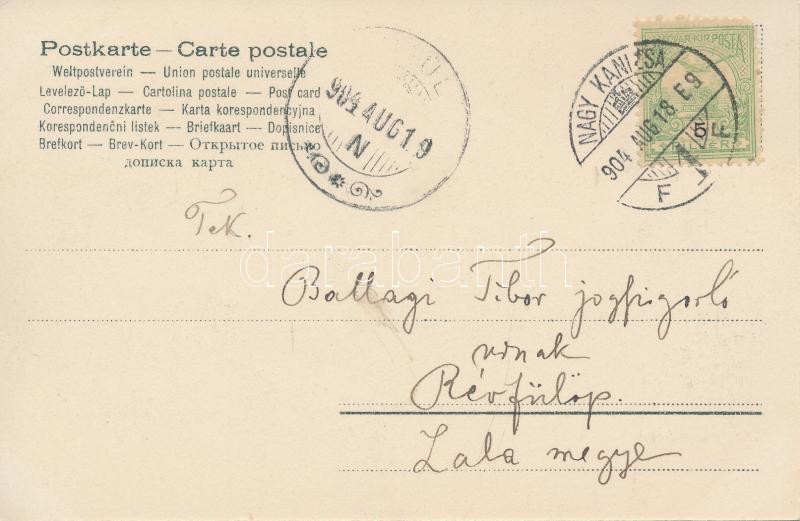 Postkarte — Carte postale
Weltpostverein — Union postale universelle
Levelező-Lap — Cartolina postale — Post card
Correspondenzkarte — Karta korespondencyjna
Korespondenční listek — Briefkaart — Dopisnice
Brefkort — Brev-Kort — Открытое письмо
дописка карта
904 AUG 19
N
NAGY KANIZSA
904 AUG 18 E 9
F
MAGYAR KIR. POSTA
5
darabanth
Tek.
Ballagi Tibor jogszigorló
urnak
Révfülöp.
Zala megye